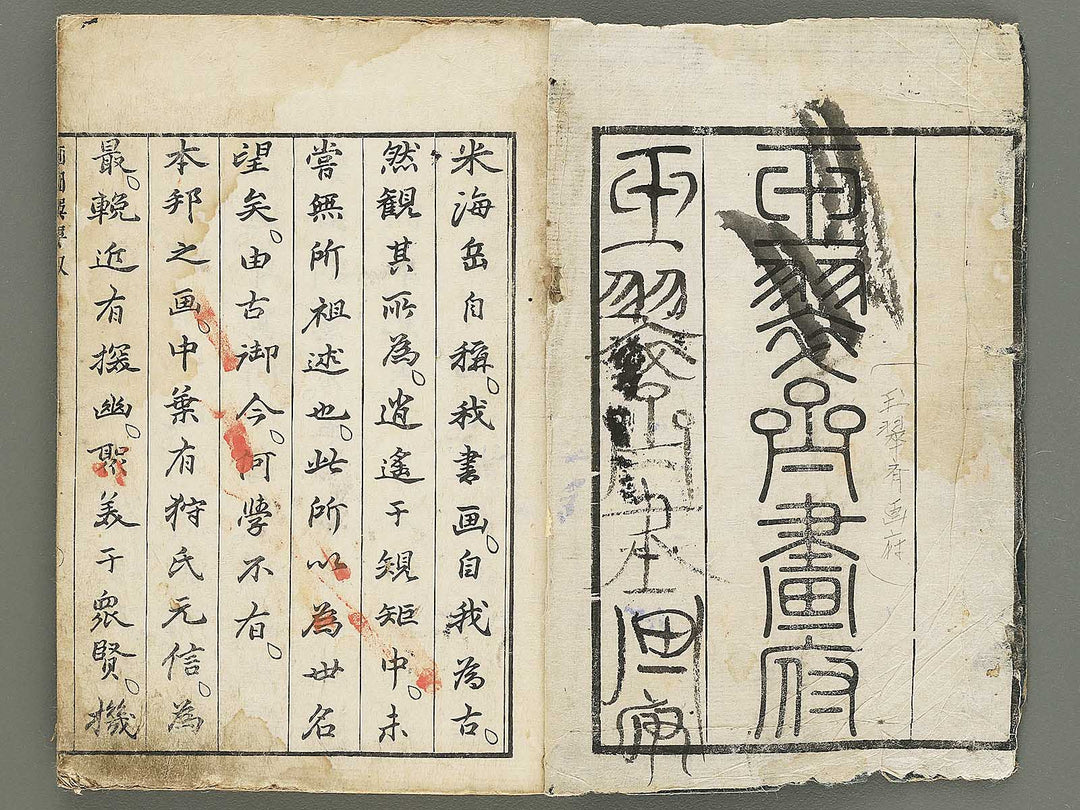 玉翠齊畫府
（玉翠斉画府）
米海岳自稱。我書画。自我為古。
然観其所為。逍遙于䂓矩中。未
嘗無所祖述也。此所以為世名
望矣。由古御今。何學不有。
本邦之画。中葉有狩氏元信。為
最。輓近有探幽。聚美于衆賢。機